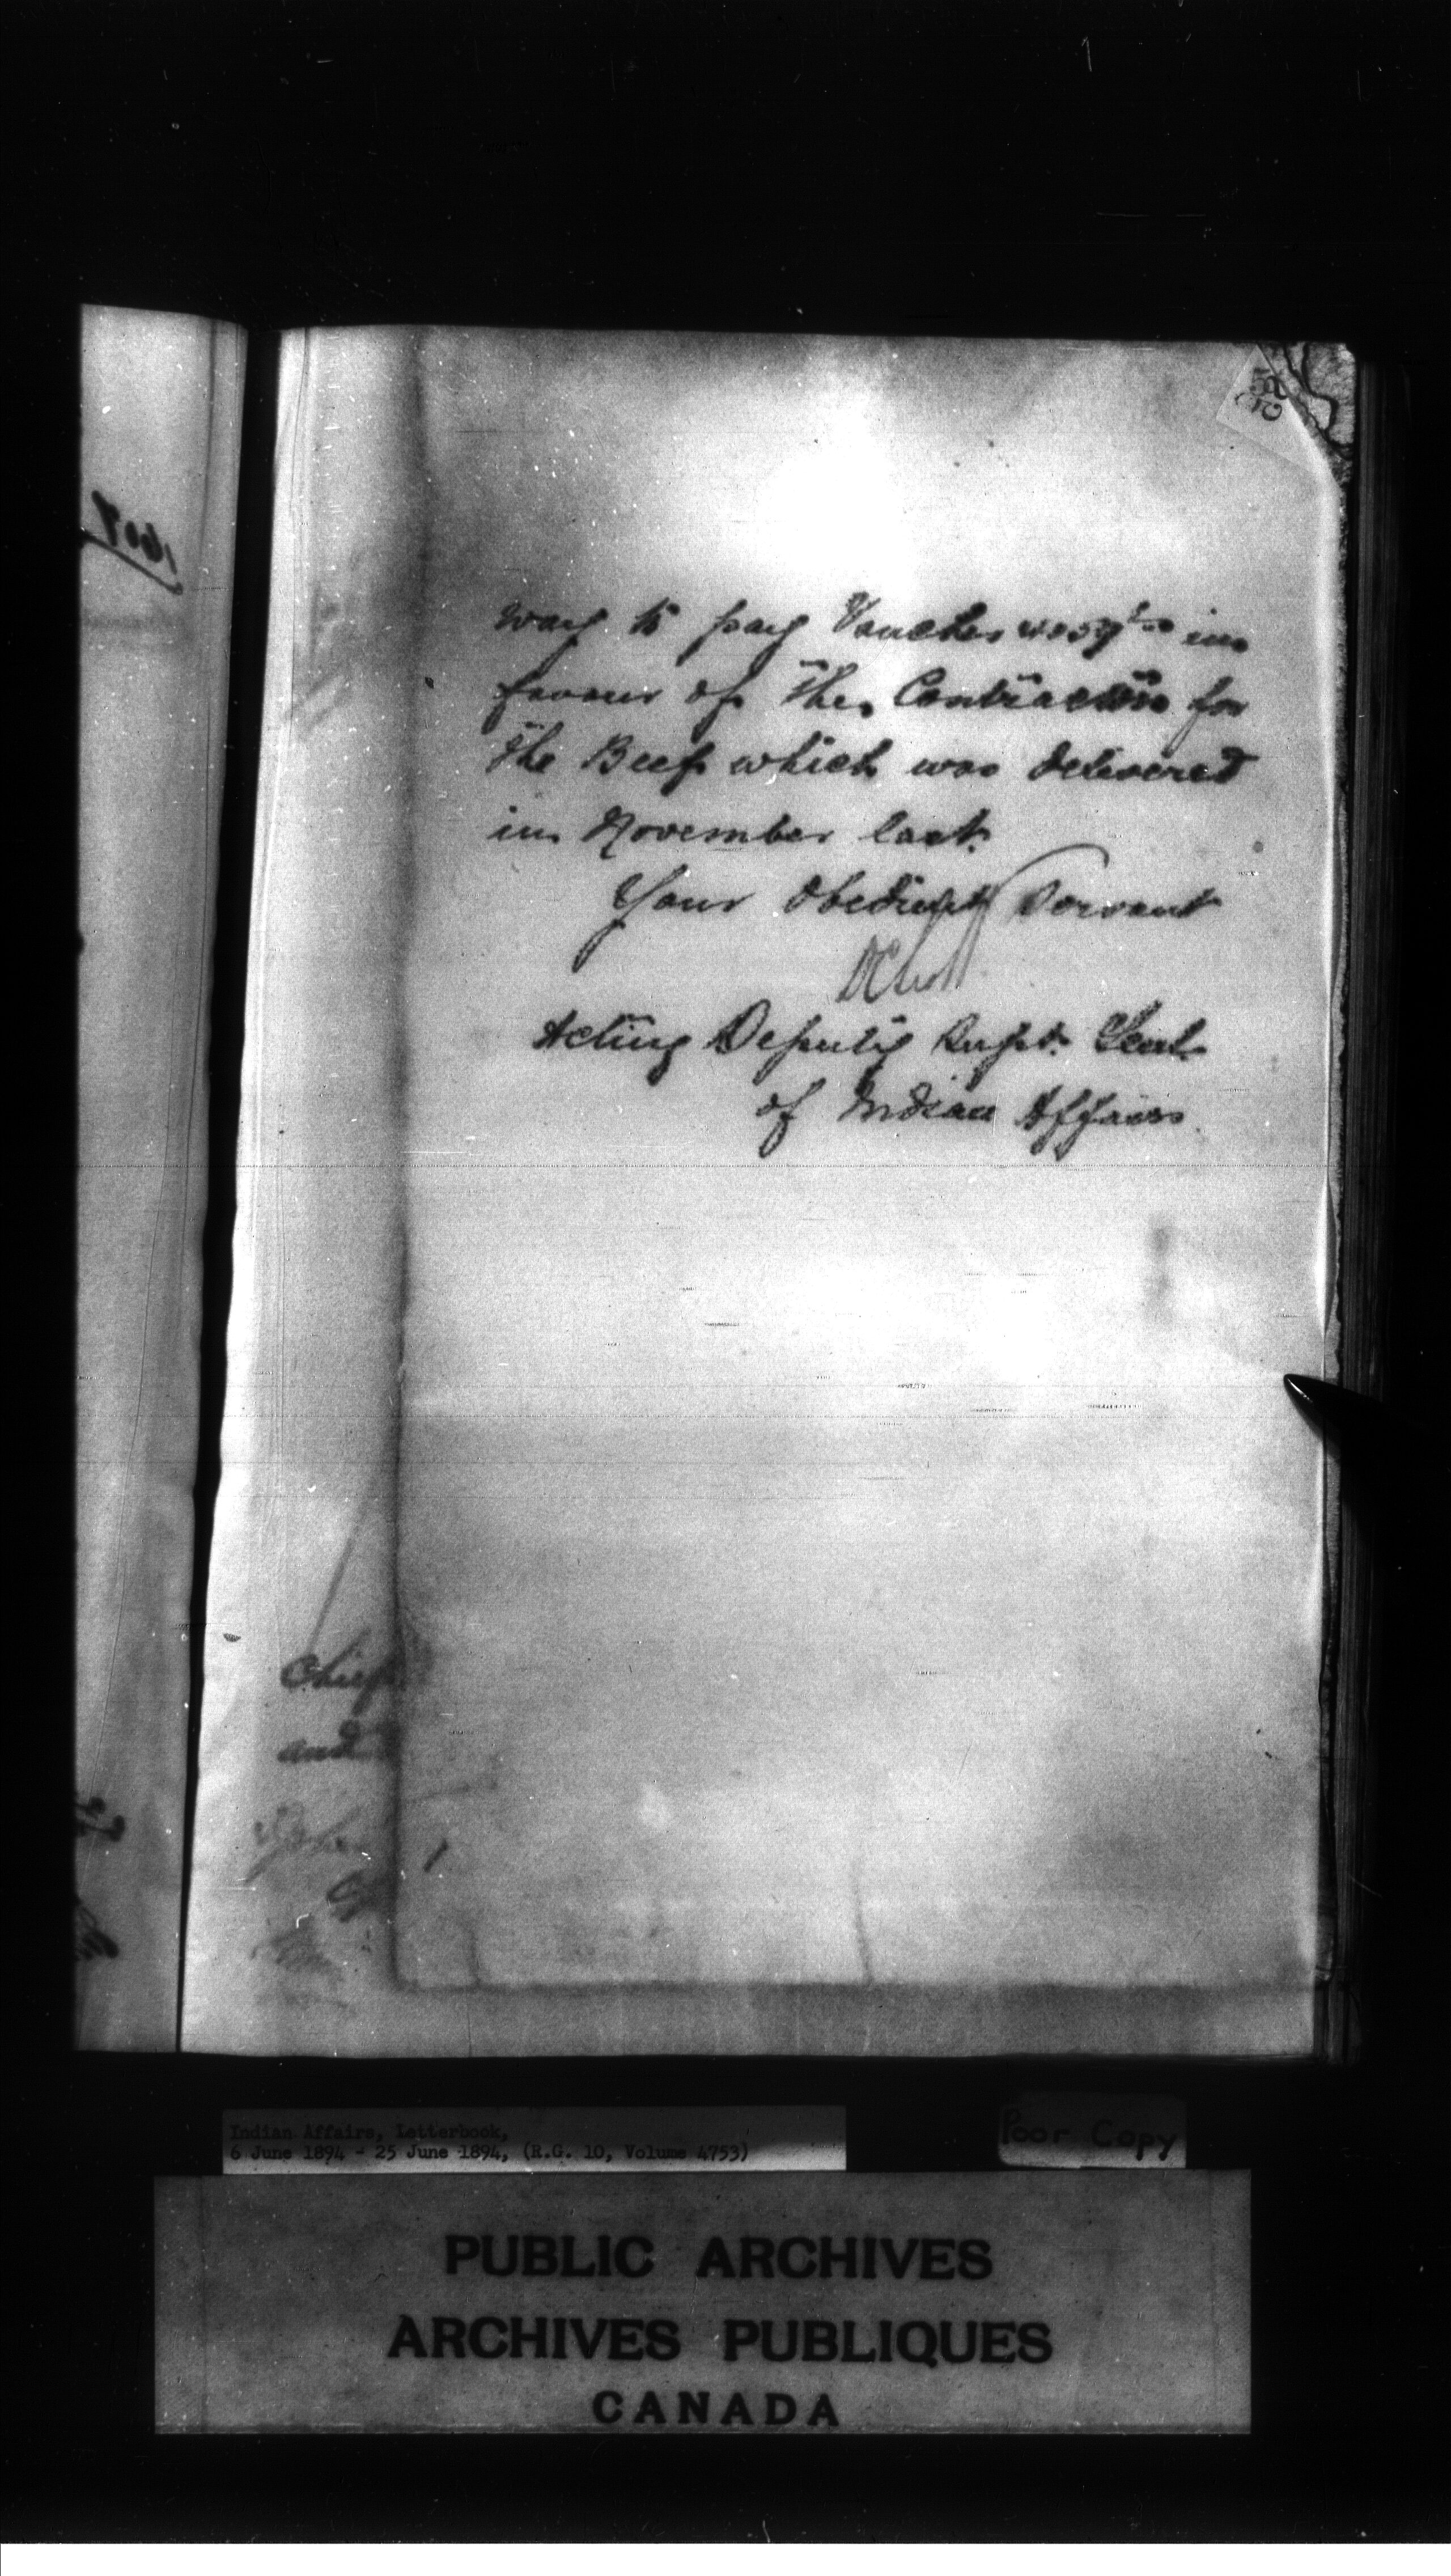 way to pay Voucher in
favour of the Contractor for
the Beef which was delivered
in November last.
Your Obedient Servant
Acting Deputy Supt. Genl.
of Indian Affairs.
Chief
and
Indian Affairs, Letterbook,
6 June 1894 - 25 June 1894, (R.G. 10, Volume 4753)
Poor Copy
PUBLIC ARCHIVES
ARCHIVES PUBLIQUES
CANADA